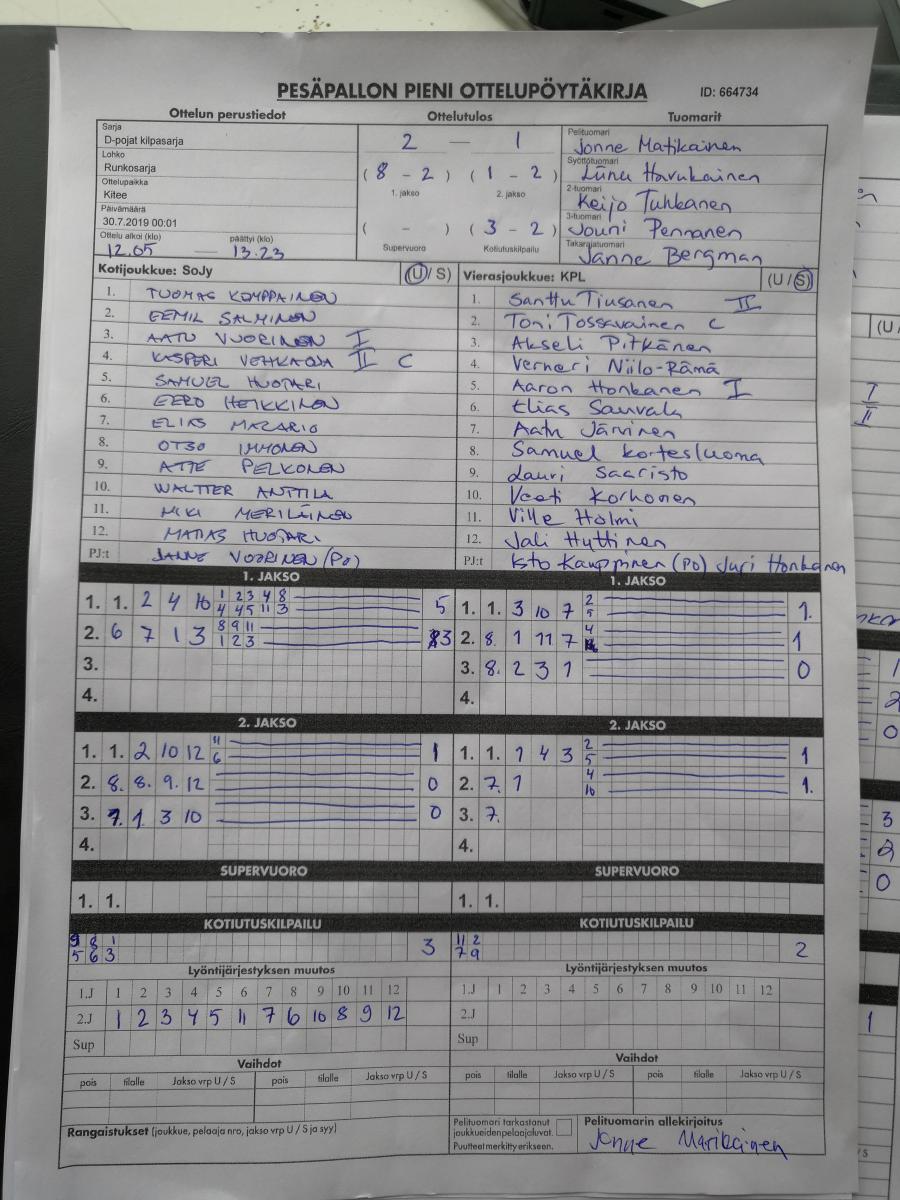 PESÄPALLON PIENI OTTELUPÖYTÄKIRJA ID: 664734
Ottelun perustiedot Ottelutulos Tuomarit
Sarja
D-pojat kilpasarja
Lohko
Runkosarja
Ottelupaikka
Kitee
Päivämäärä
30.7.2019 00:01
Ottelu alkoi (klo) päättyi (klo)
12.05 — 13.23
2 — 1
(8 - 2) (1 - 2)
1. jakso 2. jakso
( - ) (3 - 2)
Supervuoro Kotiutuskilpailu
Pelituomari
Jonne Matikainen
Syöttötuomari
Havukainen
2-tuomari
Keijo Tuhkanen
3-tuomari
Jouni Pennanen
Takarajatuomari
Janne Bergman
Kotijoukkue: SoJy (U/S)
1. TUOMAS KOMPPAINEN
2. EEMIL SALMINEN
3. AATU VUORINEN I
4. KASPERI VEHKAOJA II C
5. SAMUEL HUOTARI
6. EERO HEIKKINEN
7. ELIAS MAKARIO
8. OTSO IMMONEN
9. ATTE PELKONEN
10. WALTTER ANTTILA
11. MIKI MERILÄINEN
12. MATIAS HUOTARI
PJ:t JANNE VUORINEN (PO)
Vierasjoukkue: KPL (U/S)
1. Santtu Tiusanen II
2. Toni Tossavainen C
3. Akseli Pitkänen
4. Verneri Niilo-Rämä
5. Aaron Honkanen I
6. Elias Sauvala
7. Aatu Järvinen
8. Samuel Kortesluoma
9. Lauri Saaristo
10. Veeti Korhonen
11. Ville Holmi
12. Jali Hyttinen
PJ:t Kauppinen (PO) Juri Honkanen
1. JAKSO
1. 1. 2 4 10 1 2 3 4 8 5
4 4 5 11 3
2. 6 7 1 3 8 9 11 3
1 2 3
3.
4.
1. JAKSO
1. 1. 3 10 7 2 1.
5
2. 8. 1 11 7 4 1
3. 8. 2 3 1 0
4.
2. JAKSO
1. 1. 2 10 12 11 1
6
2. 8. 8. 9. 12 0
3. 7. 1. 3 10 0
4.
2. JAKSO
1. 1. 1 4 3 2 1
5
2. 7. 1 4 1.
10
3. 7.
4.
SUPERVUORO
1. 1.
SUPERVUORO
1. 1.
KOTIUTUSKILPAILU
9 8 1 3
5 6 3
KOTIUTUSKILPAILU
11 2 2
7 9
Lyöntijärjestyksen muutos
1.J 1 2 3 4 5 6 7 8 9 10 11 12
2.J 1 2 3 4 5 11 7 6 10 8 9 12
Sup
Lyöntijärjestyksen muutos
1.J 1 2 3 4 5 6 7 8 9 10 11 12
2.J
Sup
Vaihdot
pois tilalle Jakso vrp U / S pois tilalle Jakso vrp U / S
Vaihdot
pois tilalle Jakso vrp U / S pois tilalle Jakso vrp U / S
Rangaistukset (joukkue, pelaaja nro, jakso vrp U / S ja syy)
Pelituomari tarkastanut
joukkueiden pelaajaluvat.
Puutteet merkitty erikseen.
Pelituomarin allekirjoitus
Jonne Matikainen